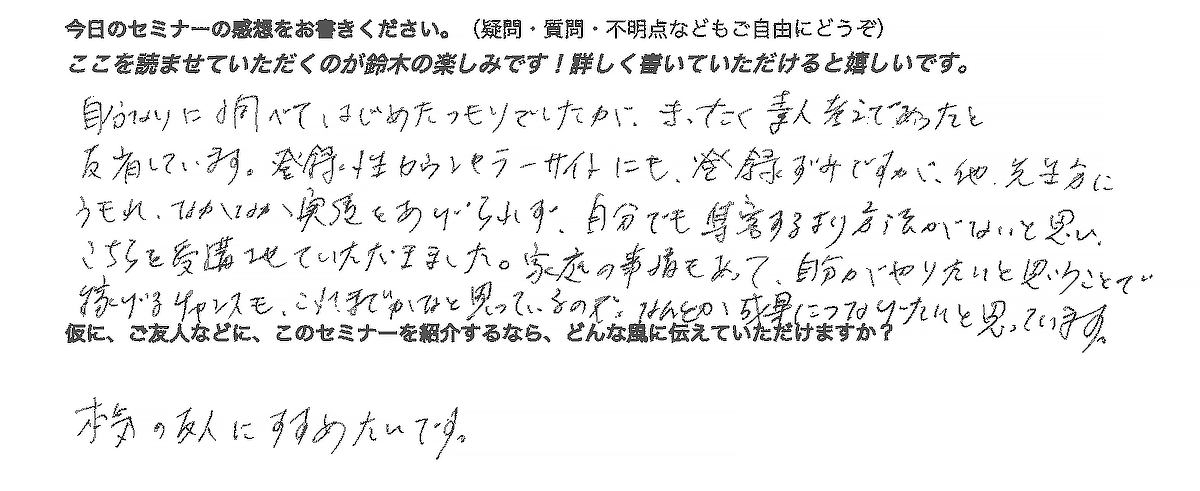 今日のセミナーの感想をお書きください。（疑問・質問・不明点などもご自由にどうぞ）
ここを読ませていただくのが鈴木の楽しみです！詳しく書いていただけると嬉しいです。
自分なりに調べて、はじめたつもりでしたが、まったく素人考えであったと
反省しています。登録 性カウンセラーサイトにも、登録ずみですが、他 先生方に
うもれ、なかなか実績をあげられず、自分でも集客するより方法がないと思い、
こちらを受講させていただきました。家庭の事情もあって、自分がやりたいと思うことで
稼げるチャンスも、これまでかなと思っているので。なんとか成果につなげたいと思っています。
仮に、ご友人などに、このセミナーを紹介するなら、どんな風に伝えていただけますか？
本気の友人にすすめたいです。